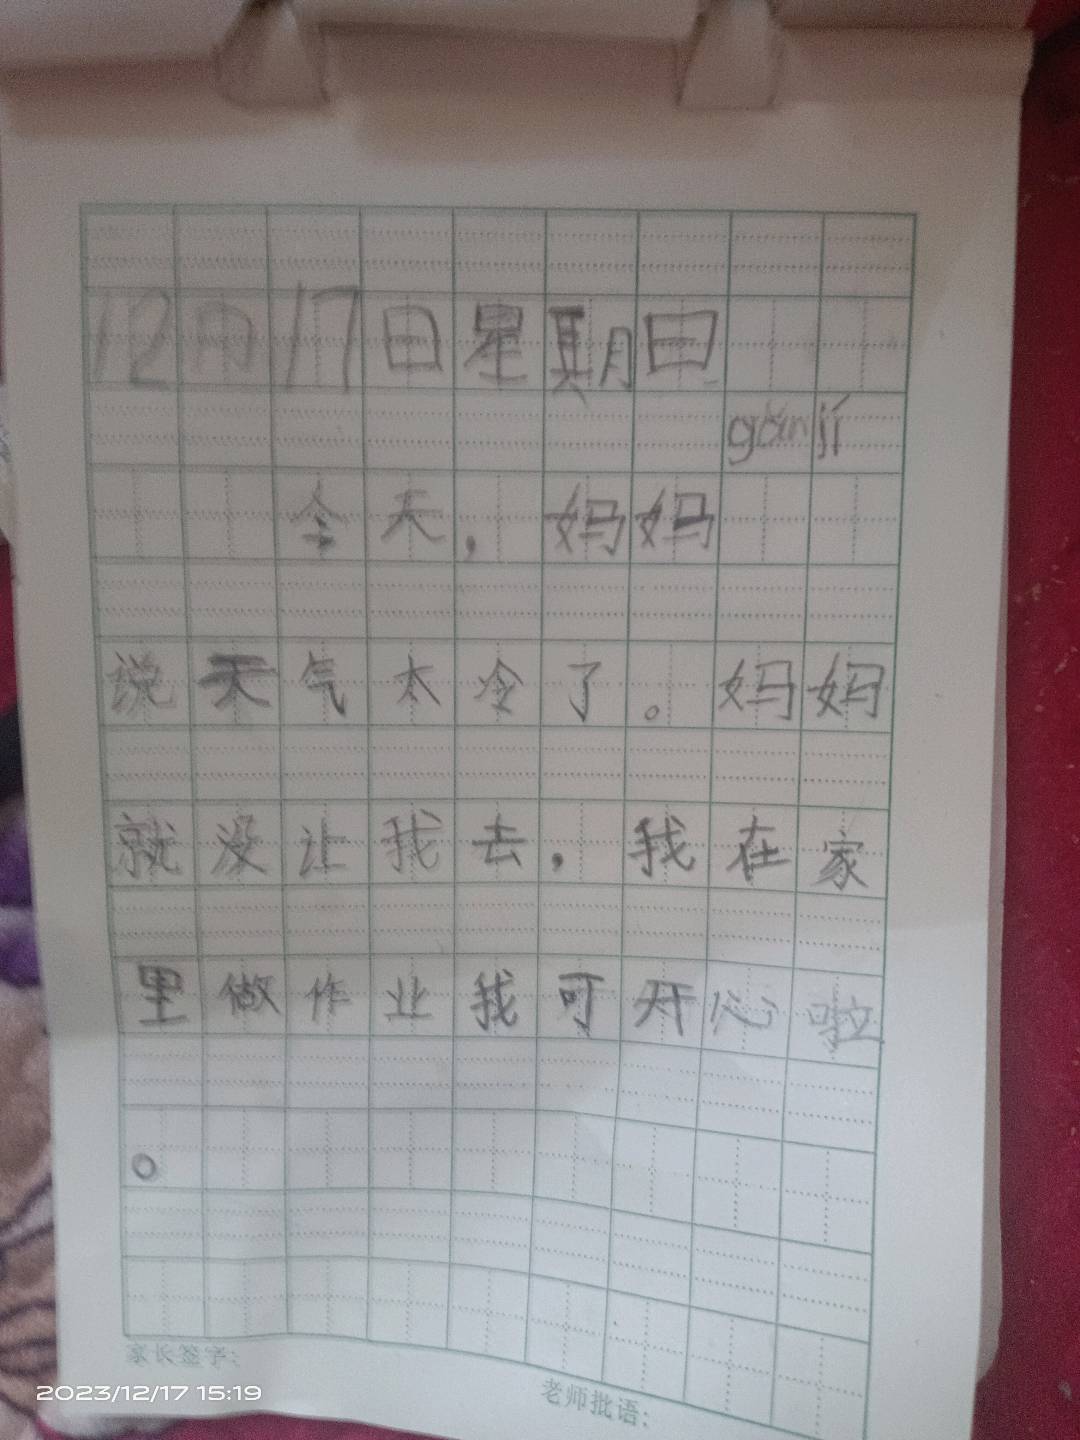 12月17日星期日
gǎn jí
今天，妈妈
说天气太冷了。妈妈
就没让我去，我在家
里做作业我可开心啦
。
家长签字：
老师批语：
2023/12/17 15:19